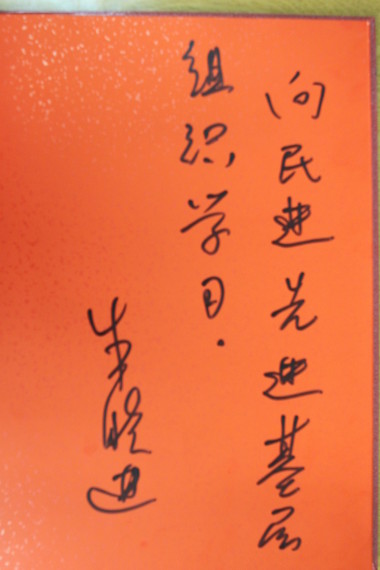 向民进先进基层
组织学习.
朱晓进